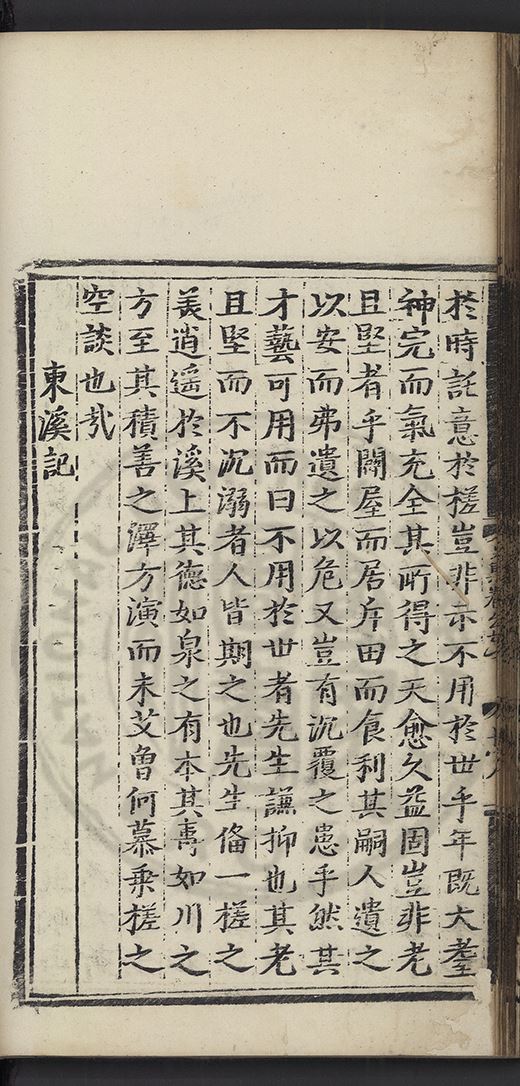 於時託意於槎豈非示不用於世乎年既大耋
神完而氣充全其所得之天愈久益固豈非老
且堅者乎闢屋而居斥田而食利其嗣人遺之
以安而弗遺之以危又豈有沉覆之患乎然其
才藝可用而曰不用於世者先生謙抑也其老
且堅而不沉溺者人皆期之也先生俻一槎之
美逍遥於溪上其德如泉之有本其壽如川之
方至其積善之澤方演而未艾曾何慕乗槎之
空談也㢤
東溪記